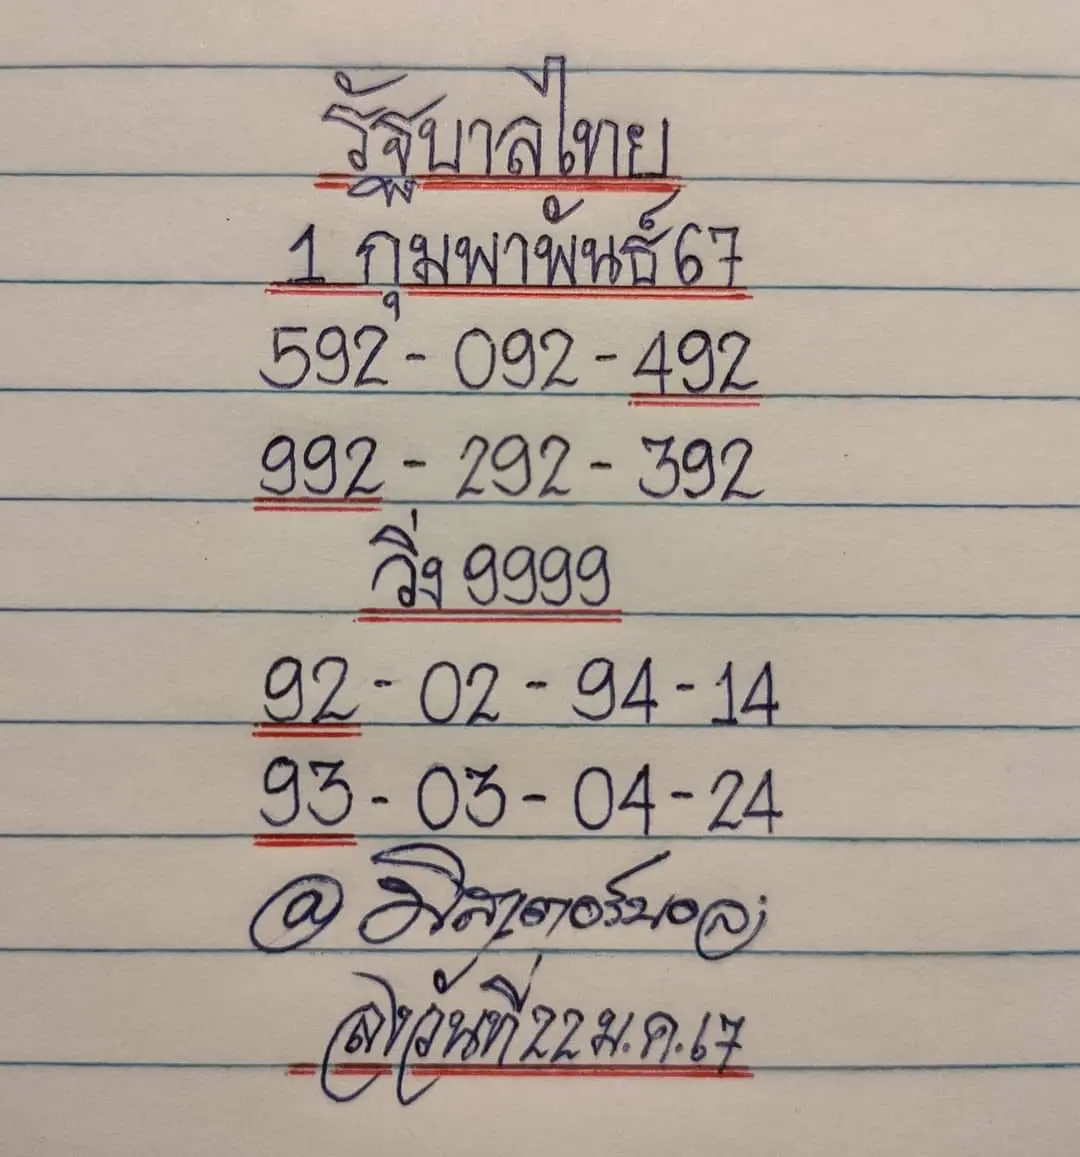 รัฐบาลไทย
1 กุมพาพันธ์ 67
592 - 092 - 492
992 - 292 - 392
วิ่ง 9999
92 - 02 - 94 - 14
93 - 03 - 04 - 24
@ มิสเตอร์บอล
ลงวันที่ 22 ม.ค.67